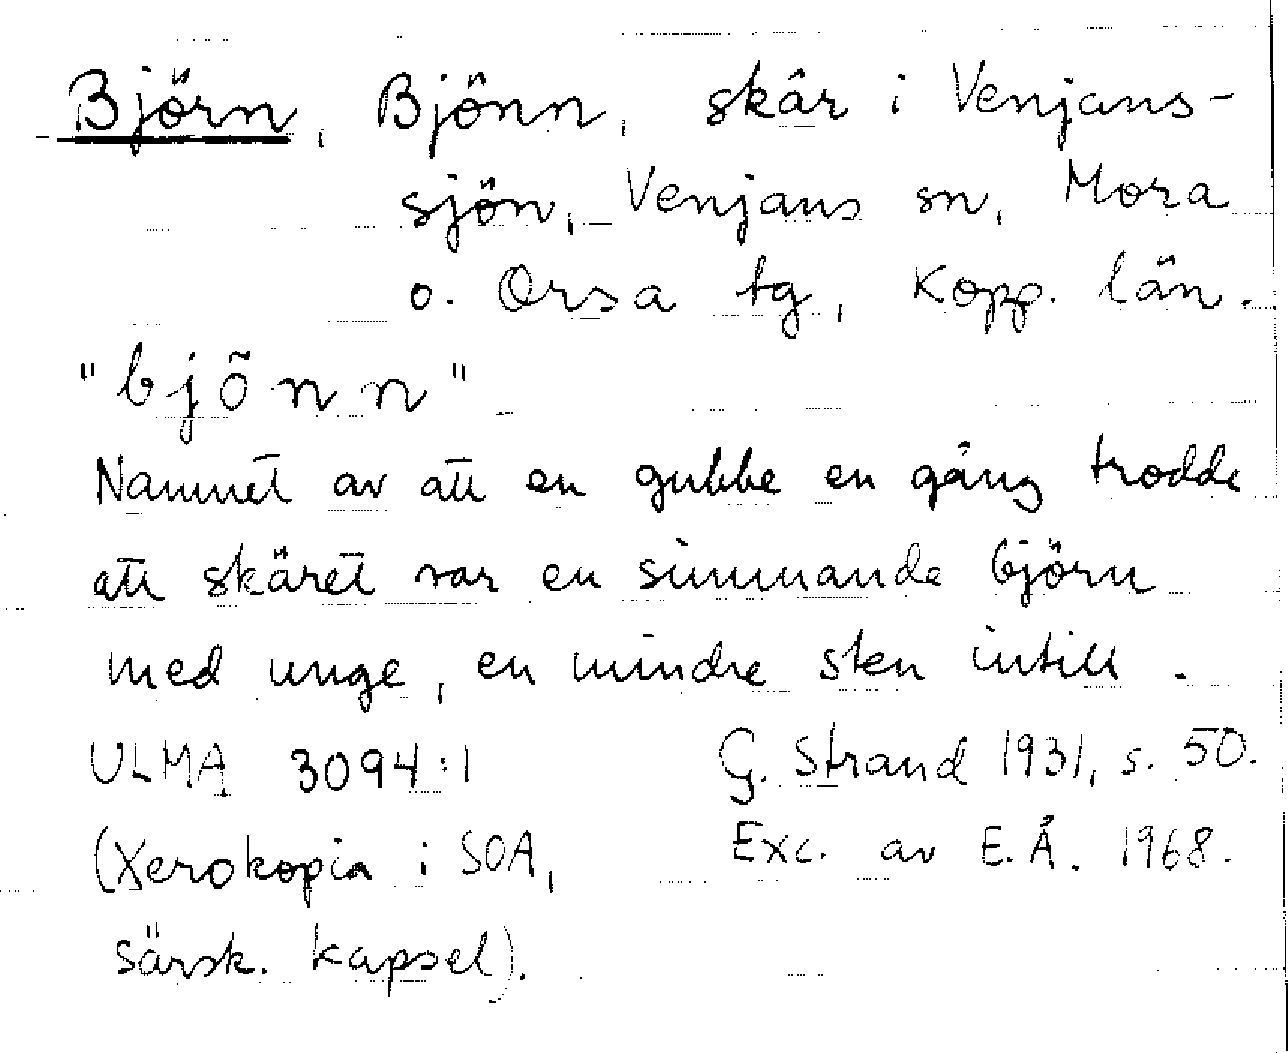 Björn, Bjönn, skär i Venjans-
sjön, Venjans sn, Mora
o. Orsa tg, Kopp. län.
"bjõnn"
Namnet av att en gubbe en gång trodde
att skäret var en simmande björn
med unge, en mindre sten intill.
ULMA 3094:1 G. Strand 1931, s. 50.
(Xerokopia i SOA, Exc. av E.Å. 1968.
särsk. kapsel).